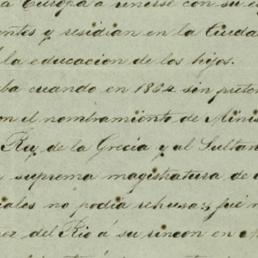 a Europa á unirse con su es
entes y residian en la Ciudad
la educacion de los hijos.
ba cuando en 1864 sin preten
on el nombramiento de Minis
Rey de la Grecia y al Sultan
suprema magistratura de
iales no podia rehusar; fué n
ez del Rio á su rincon en